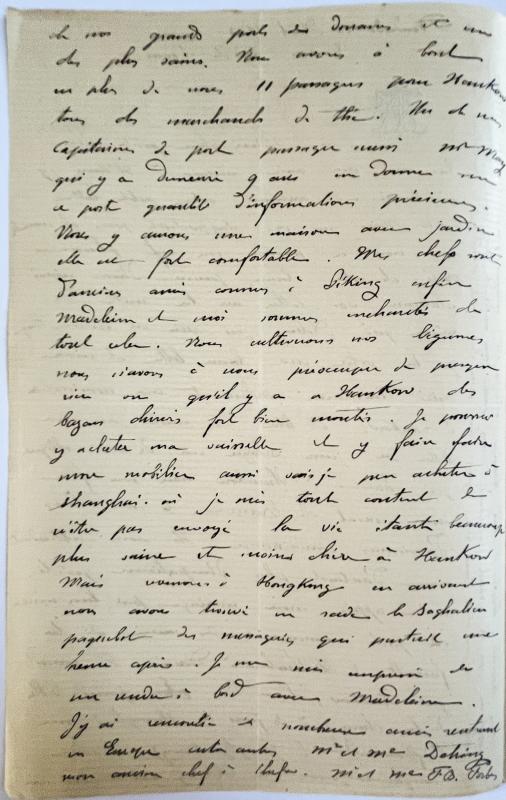 de nos grands ports des douanes et un
des plus sains. Nous avons à bord
en plus de nous 11 passagers pour Hankow
tous des marchands de thé. Un de nos
capitaines de port passager aussi Mr May
qui y a demeuré 9 ans m'a donné sur
ce port quantité d'informations précieuses.
Nous y aurons une maison avec jardin
elle est fort comfortable. Mes chefs sont
d'anciens amis connus à Péking enfin
Madeleine et moi sommes enchantés de
tout cela. Nous cultiverons nos légumes
nous n'avons à nous préoccuper de
rien vu qu'il y a a Hankow des
bazars chinois fort bien montés. Je pourrai
y acheter ma vaisselle et y faire faire
mon mobilier aussi vais je peu acheter à
Shanghai. où je suis tout content de
n'être pas envoyé la vie étant beaucoup
plus saine et moins chère à Hankow
Mais revenons à Hongkong en arrivant
nous avons trouvé en rade le Saghalien
paquebot des messageries qui partait une
heure après. Je me suis empressé de
me rendre à bord avec Madeleine.
J'y ai rencontré de nombreux amis rentrant
en Europe entr autres Mr et Me
mon ancien chef à Chefoo. Mr et Me F.B. Forbes